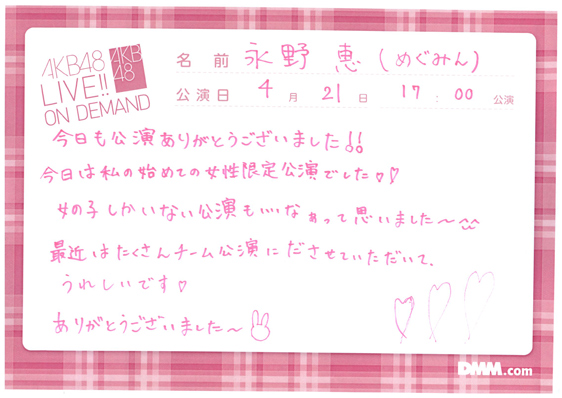 AKB48
LIVE!!
ON DEMAND
AKB
48
名前 永野 恵 (めぐみん)
公演日 4月 21日 17:00 公演
今日も公演ありがとうございました!!
今日は私の始めての女性限定公演でした♡♡
女の子しかいない公演もいいなぁって思いました〜^^
最近はたくさんチーム公演にださせていただいて、
うれしいです♡
ありがとうございました〜
DMM.com